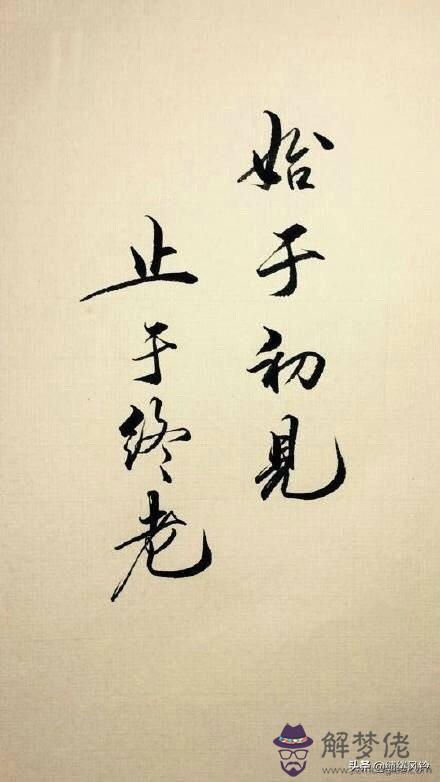 始于初見
止于终老
解梦佬
头条@缅缈风铃